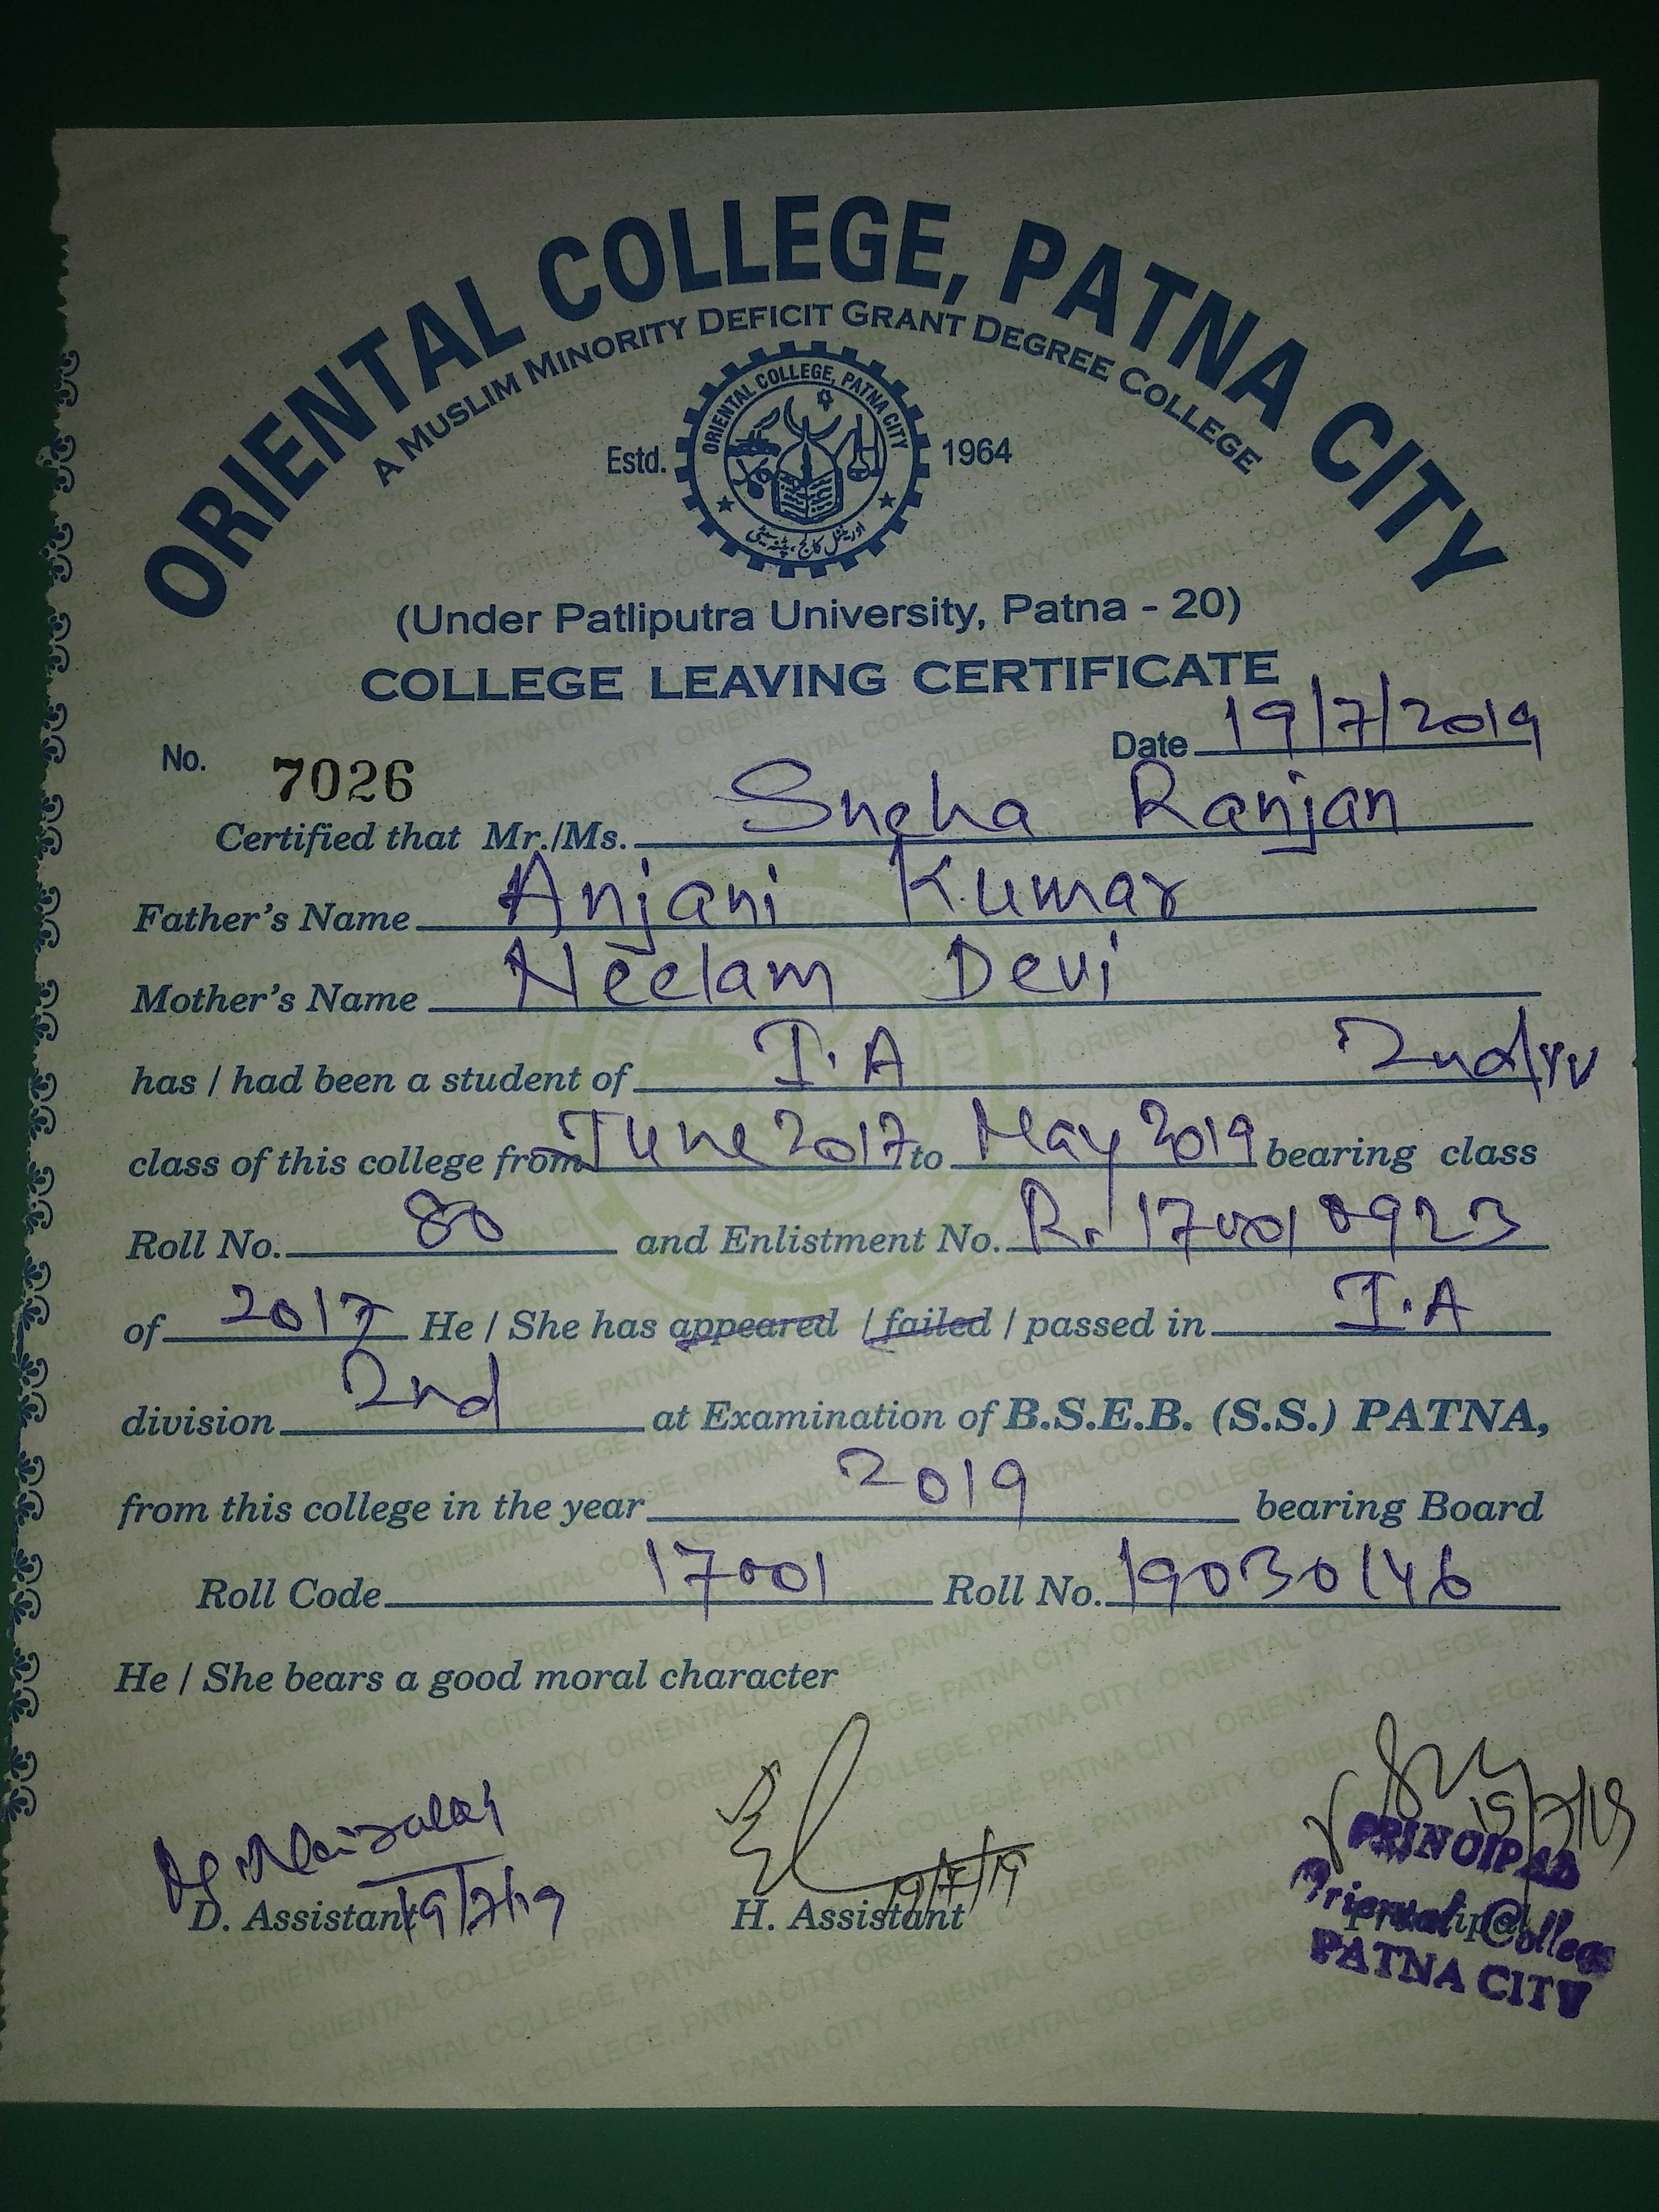 ORIENTAL COLLEGE, PATNA CITY
A MUSLIM MINORITY DEFICIT GRANT DEGREE COLLEGE
Estd. 1964
ORIENTAL COLLEGE, PATNA CITY
اورینٹل کالج، پٹنہ سیٹی
(Under Patliputra University, Patna - 20)
COLLEGE LEAVING CERTIFICATE
Date 19/7/2019
No. 7026
Certified that Mr./Ms. Sneha Ranjan
Father's Name Anjani Kumar
Mother's Name Neelam Devi
has / had been a student of I.A 2nd yr
class of this college from June 2017 to May 2019 bearing class
Roll No. 80 and Enlistment No. R. 170010923
of 2017 He / She has appeared / failed / passed in I.A
division 2nd at Examination of B.S.E.B. (S.S.) PATNA,
from this college in the year 2019 bearing Board
Roll Code 17001 Roll No. 19030146
He / She bears a good moral character
19/7/19
D. Assistant
19/7/19
H. Assistant
PRINCIPAL
Principal
Oriental College
PATNA CITY